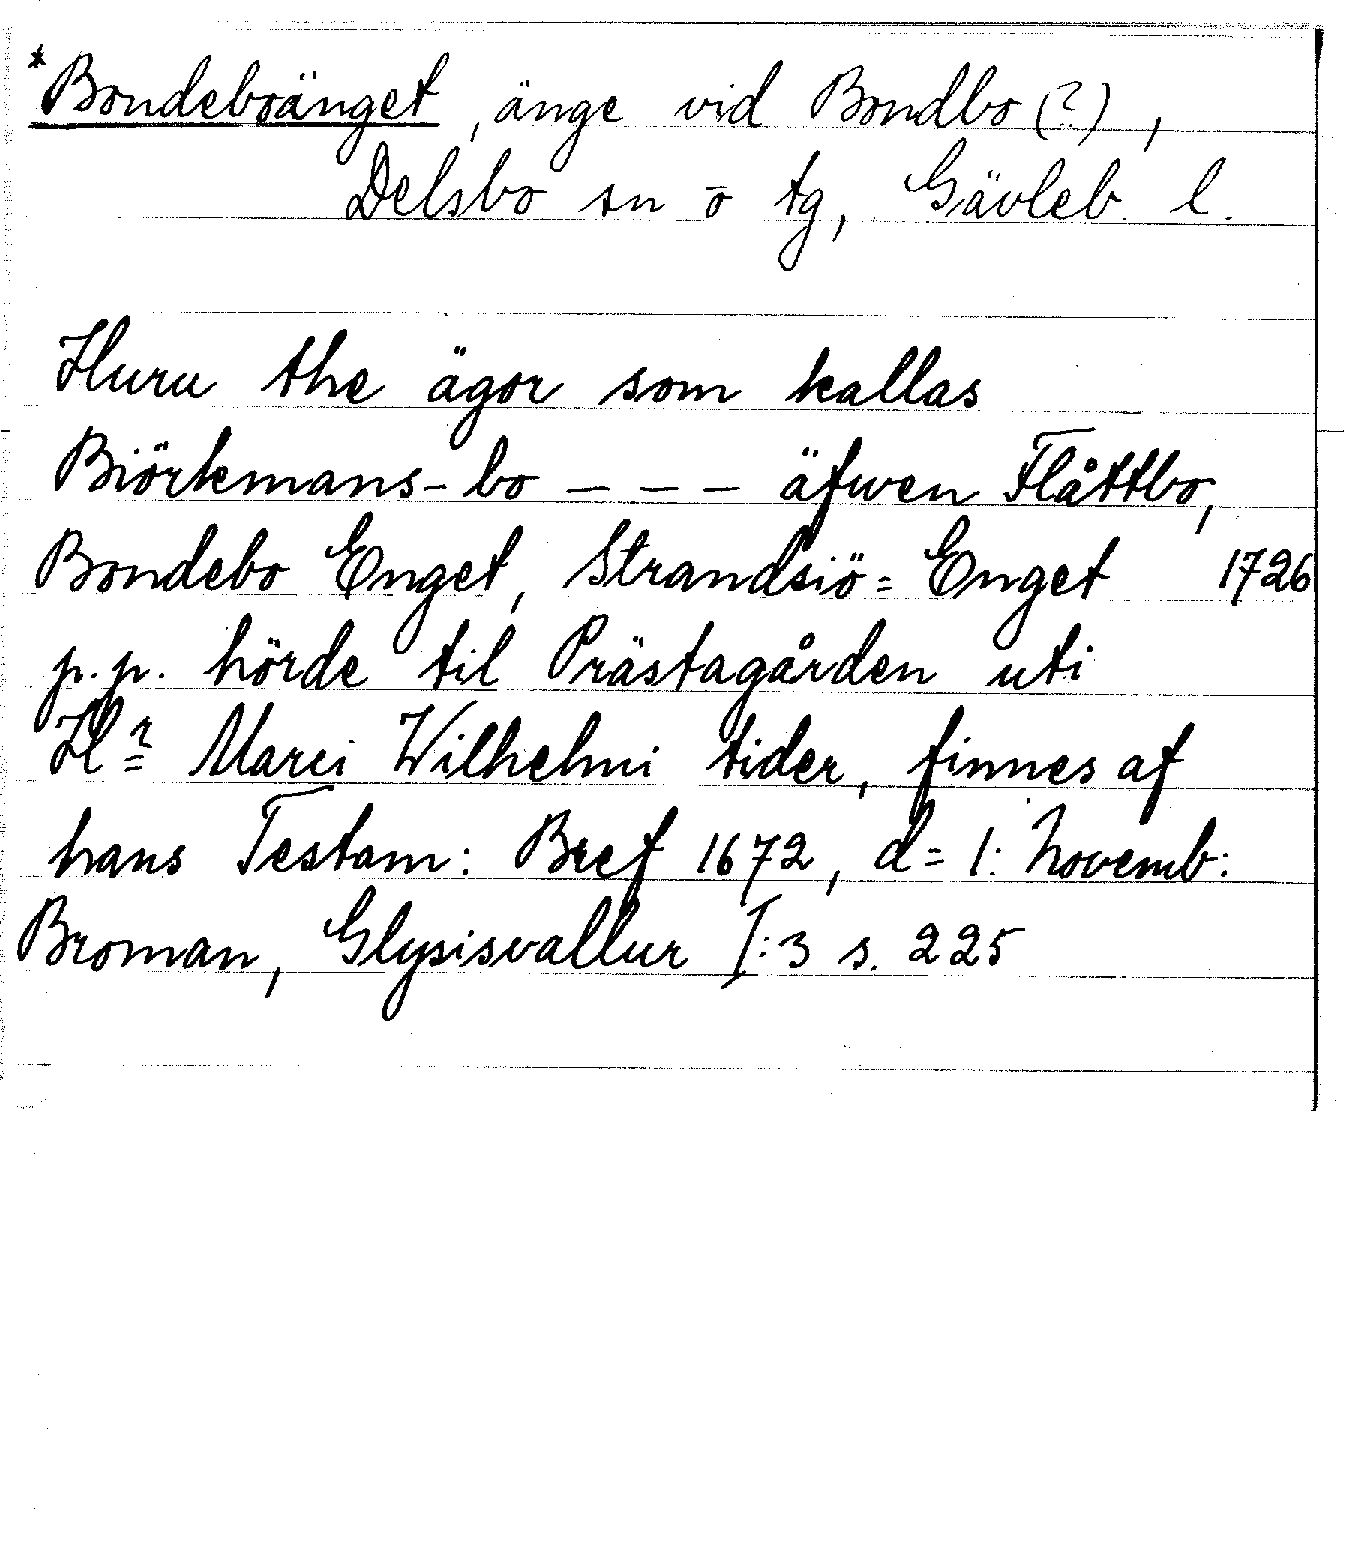 *Bondeboänget, änge vid Bondbo (?),
Delsbo sn o tg, Gävleb. l.
Huru the ägor som kallas
Biörkmans-bo - - - äfwen Flåttbo,
Bondebo Enget, Strandsiö= Enget 1726
p.p. hörde til Prästagården uti
Hr Marci Wilhelmi tider, finnes af
hans Testam: Bref 1672, d= 1: Novemb:
Broman, Glysisvallur I:3 s. 225